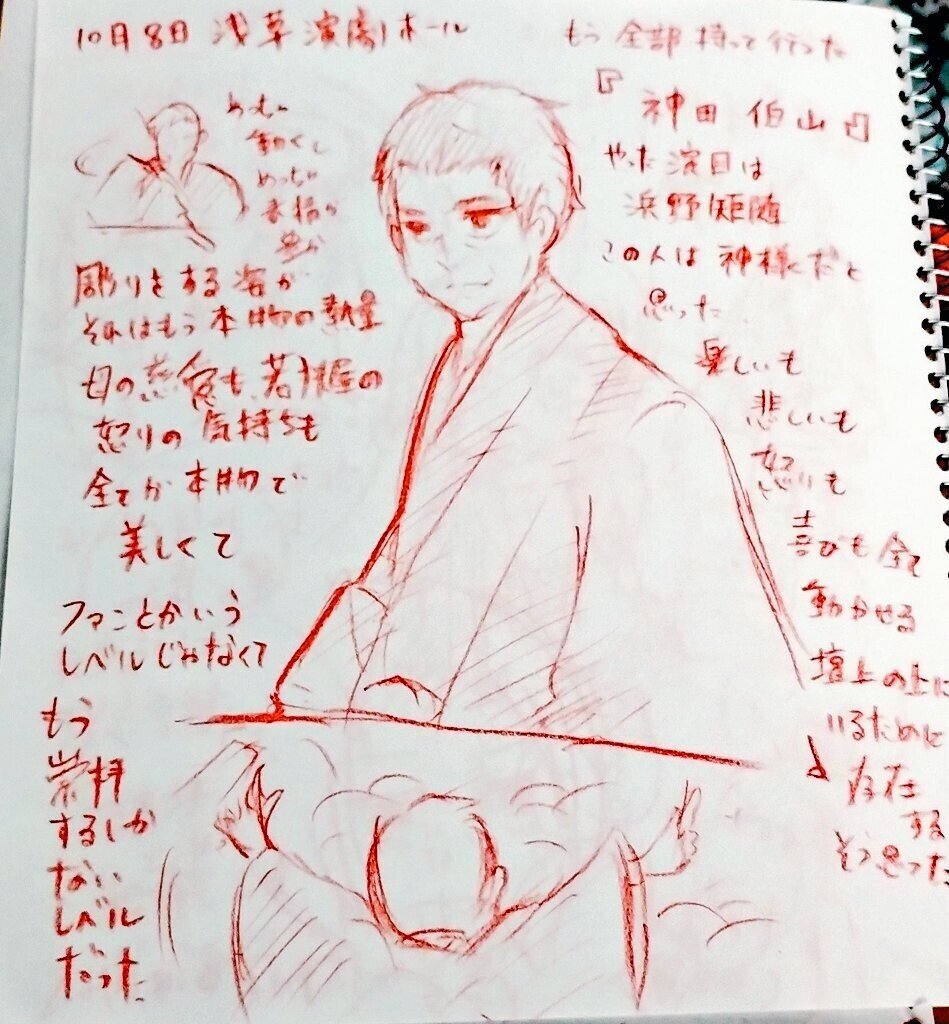 10月8日 浅草演劇ホール
もう全部持って行った
『神田伯山』
やった演目は
浜野矩随
この人は神様だと
思った
楽しいも
悲しいも
怒りも
喜びも全て
動かせる
壇上の上に
いるために
存在
する
そう思った
めっちゃ
動くし
めっちゃ
彫りをする姿が
それはもう本物の熱量
母の慈愛も、若狭屋の
怒りの気持ちも
全てが本物で
美しくて
ファンとかいう
レベルじゃなくて
もう
崇拝
するしか
ない
レベル
だった